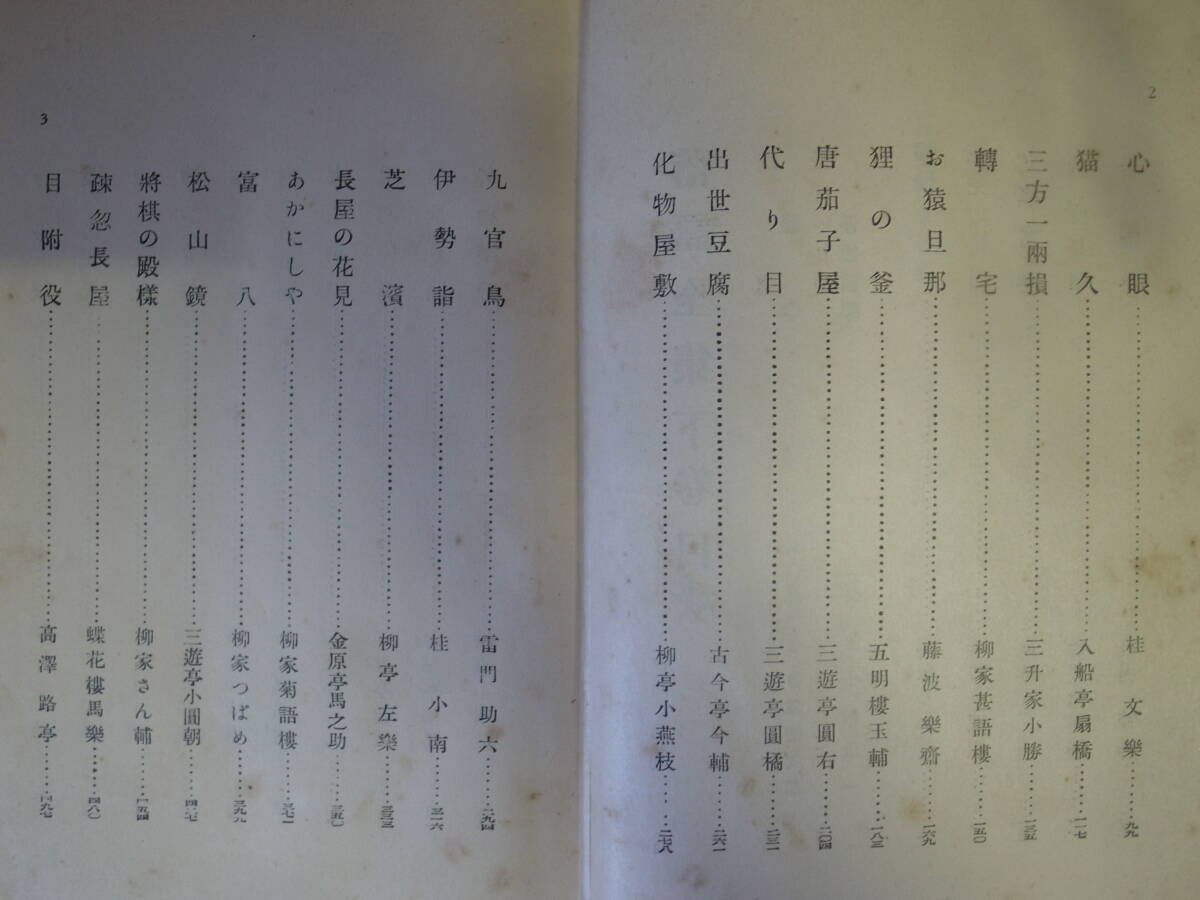 2
心眼……桂文樂……九九
猫久……入船亭扇橋……一一七
三方一兩損……三升家小勝……一三五
轉宅……柳家甚語樓……一五〇
お猿旦那……藤波樂齋……一六九
狸の釜……五明樓玉輔……一八三
唐茄子屋……三遊亭圓右……二〇四
代り目……三遊亭圓橘……二三一
出世豆腐……古今亭今輔……二六一
化物屋敷……柳亭小燕枝……二七八
九官鳥……雷門助六……二九四
伊勢詣……桂小南……三一六
芝濱……柳亭左樂……三三三
長屋の花見……金原亭馬之助……三五〇
あかにしや……柳家菊語樓……三七一
富八……柳家つばめ……三九九
松山鏡……三遊亭小圓朝……
將棋の殿樣……柳家さん輔……
疎忽長屋……蝶花樓馬樂……四八〇
目附役……高澤路亭……四九七
3